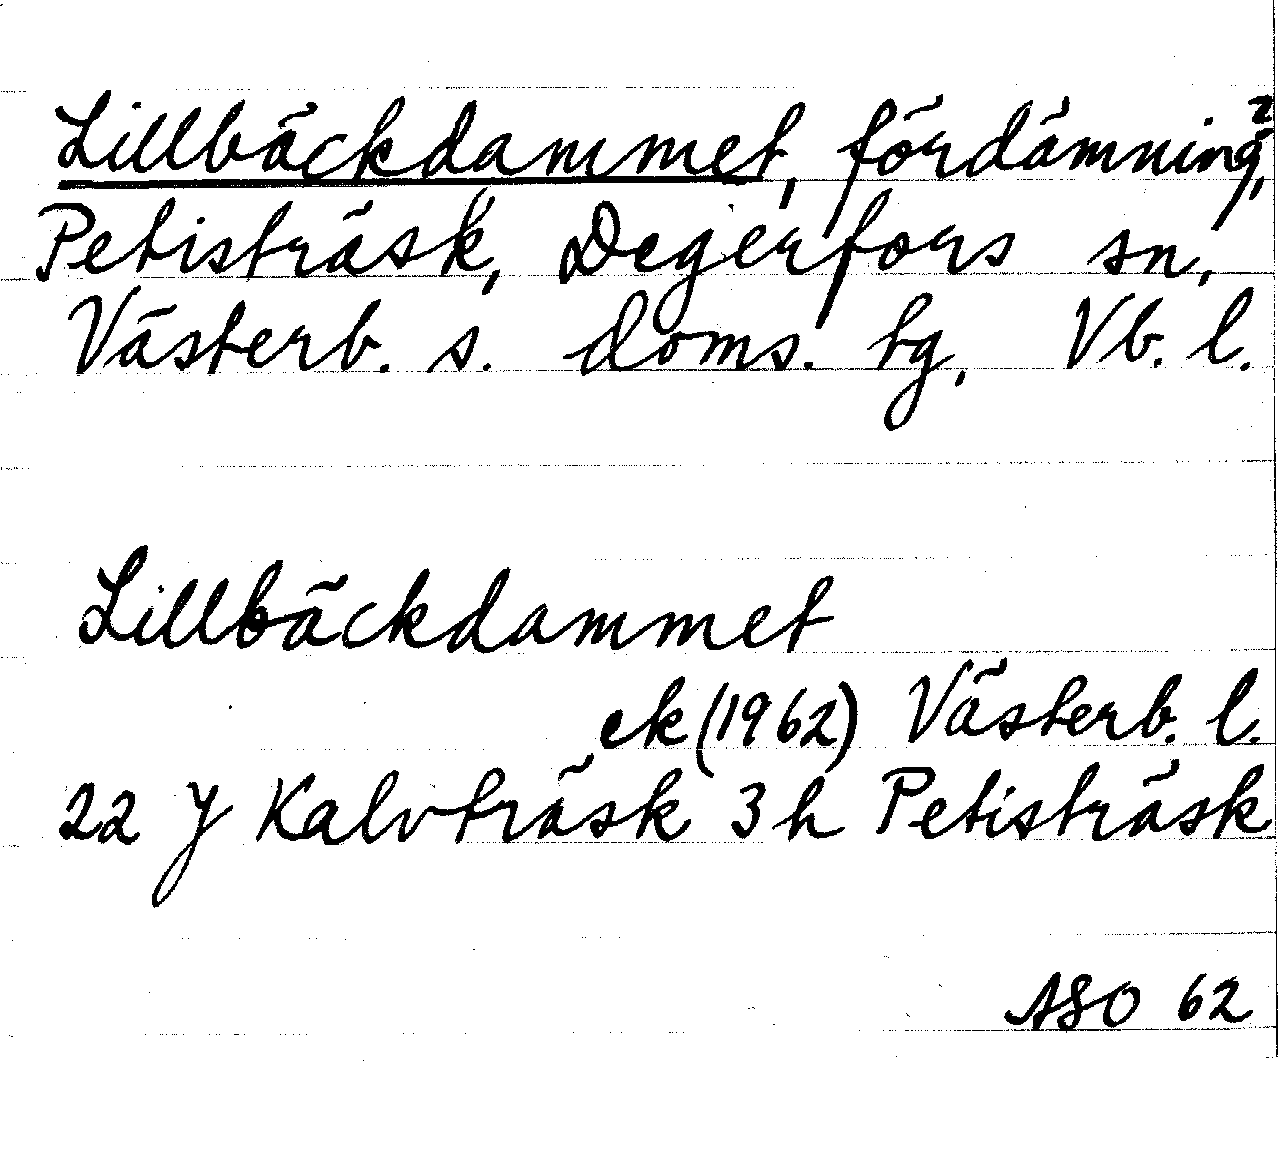 Lillbäckdammet, fördämning²,
Petisträsk, Degerfors sn,
Västerb. s. doms. tg, Vb. l.
Lillbäckdammet
ek (1962) Västerb. l.
22 J Kalvträsk 3h Petisträsk
ASO 62